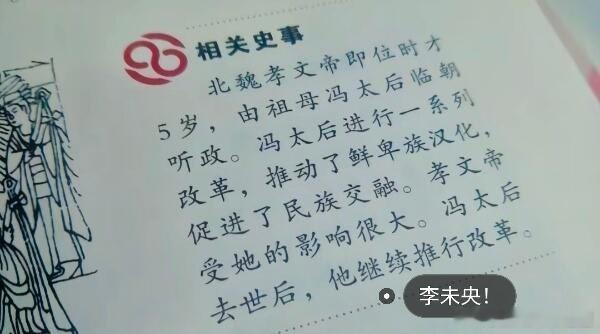 相关史事
北魏孝文帝即位时才
5岁，由祖母冯太后临朝
听政。冯太后进行一系列
改革，推动了鲜卑族汉化，
促进了民族交融。孝文帝
受她的影响很大。冯太后
去世后，他继续推行改革。
李未央！